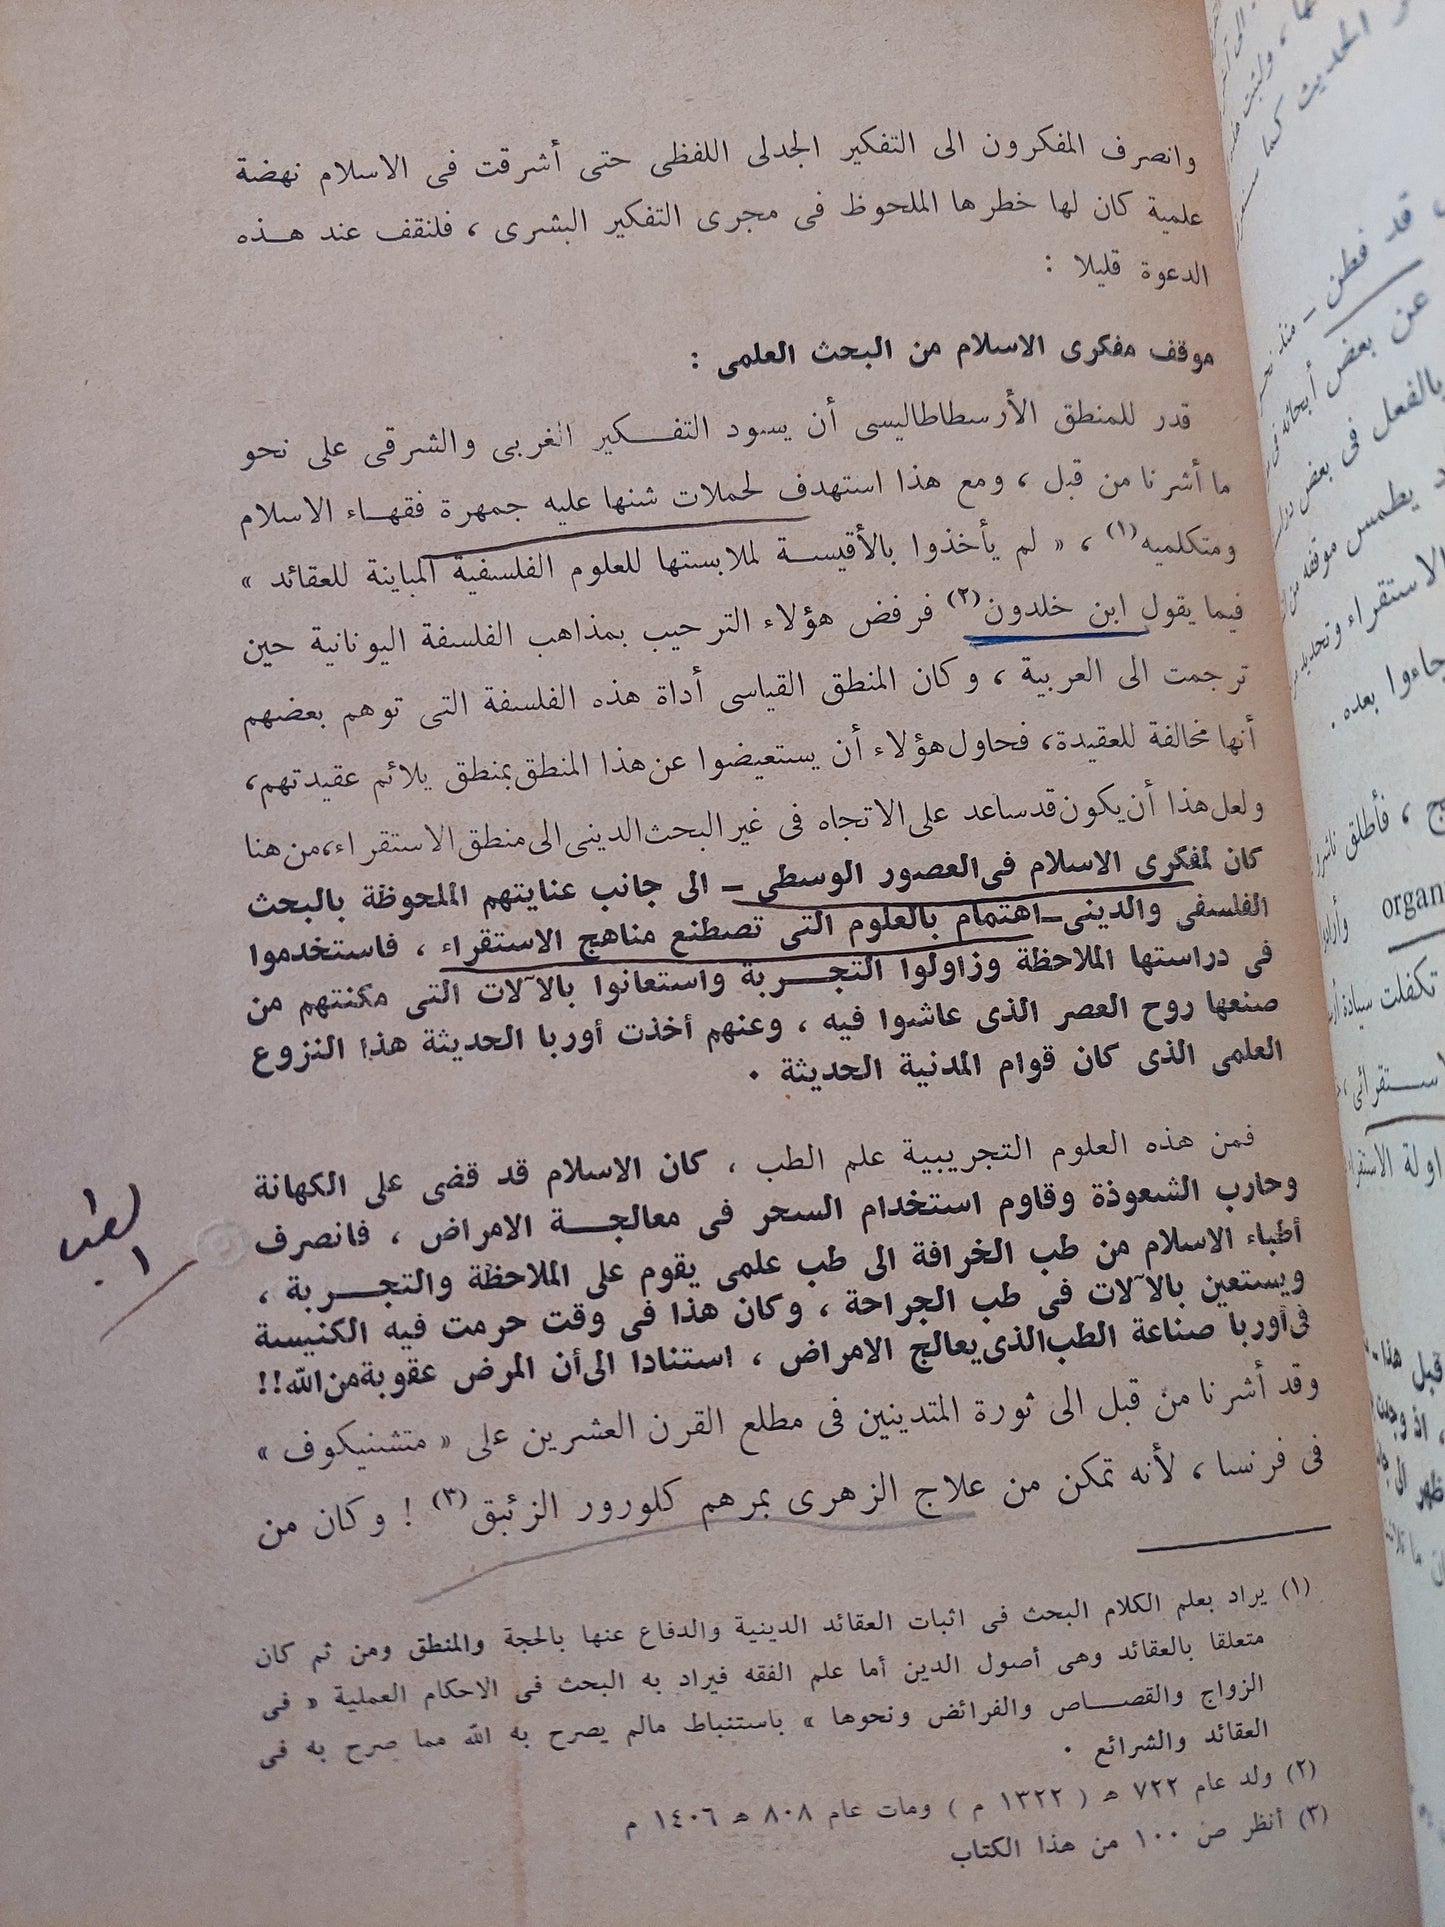 وانصرف المفكرون الى التفكير الجدلى اللفظى حتى أشرقت فى الاسلام نهضة
علمية كان لها خطرها الملحوظ فى مجرى التفكير البشرى ، فلنقف عند هذه
الدعوة قليلا :
موقف مفكرى الاسلام من البحث العلمى :
قدر للمنطق الأرسطاطاليسى أن يسود التفكير الغربى والشرقى على نحو
ما أشرنا من قبل ، ومع هذا استهدف لحملات شنها عليه جمهرة فقهاء الاسلام
ومتكلميه (١) ، « لم يأخذوا بالأقيسة لملابستها للعلوم الفلسفية المباينة للعقائد »
فيما يقول ابن خلدون (٢) فرفض هؤلاء الترحيب بمذاهب الفلسفة اليونانية حين
ترجمت الى العربية ، وكان المنطق القياسى أداة هذه الفلسفة التى توهم بعضهم
أنها مخالفة للعقيدة، فحاول هؤلاء أن يستعيضوا عن هذا المنطق بمنطق يلائم عقيدتهم،
ولعل هذا أن يكون قد ساعد على الاتجاه فى غير البحث الدينى الى منطق الاستقراء، من هنا
كان لمفكرى الاسلام فى العصور الوسطى – الى جانب عنايتهم الملحوظة بالبحث
الفلسفى والدينى – اهتمام بالعلوم التى تصطنع مناهج الاستقراء ، فاستخدموا
فى دراستها الملاحظة وزاولوا التجربة واستعانوا بالآلات التى مكنتهم من
صنعها روح العصر الذى عاشوا فيه ، وعنهم أخذت أوربا الحديثة هذا النزوع
العلمى الذى كان قوام المدنية الحديثة .
فمن هذه العلوم التجريبية علم الطب ، كان الاسلام قد قضى على الكهانة
وحارب الشعوذة وقاوم استخدام السحر فى معالجة الامراض ، فانصرف
أطباء الاسلام من طب الخرافة الى طب علمى يقوم على الملاحظة والتجربة ،
ويستعين بالآلات فى طب الجراحة ، وكان هذا فى وقت حرمت فيه الكنيسة
فى أوربا صناعة الطب الذى يعالج الامراض ، استنادا الى أن المرض عقوبة من الله !!
وقد أشرنا من قبل الى ثورة المتدينين فى مطلع القرن العشرين على « متشنيكوف »
فى فرنسا ، لأنه تمكن من علاج الزهرى بمرهم كلورور الزئبق (٣) ! وكان من
(١) يراد بعلم الكلام البحث فى اثبات العقائد الدينية والدفاع عنها بالحجة والمنطق ومن ثم كان
متعلقا بالعقائد وهى أصول الدين أما علم الفقه فيراد به البحث فى الاحكام العملية « فى
الزواج والقصاص والفرائض ونحوها » باستنباط مالم يصرح به الله مما صرح به فى
العقائد والشرائع .
(٢) ولد عام ٧٢٢ هـ ( ١٣٢٢ م ) ومات عام ٨٠٨ هـ ١٤٠٦ م
(٣) أنظر ص ١٠٠ من هذا الكتاب
الطب
١
قد فطن – منذ
عن بعض أبحاثه فى
بالفعل فى بعض
يطمس موقفه من
الاستقراء وتحديد
جاءوا بعده .
، فأطلق ناشرو
organ
تكفلت سيادة